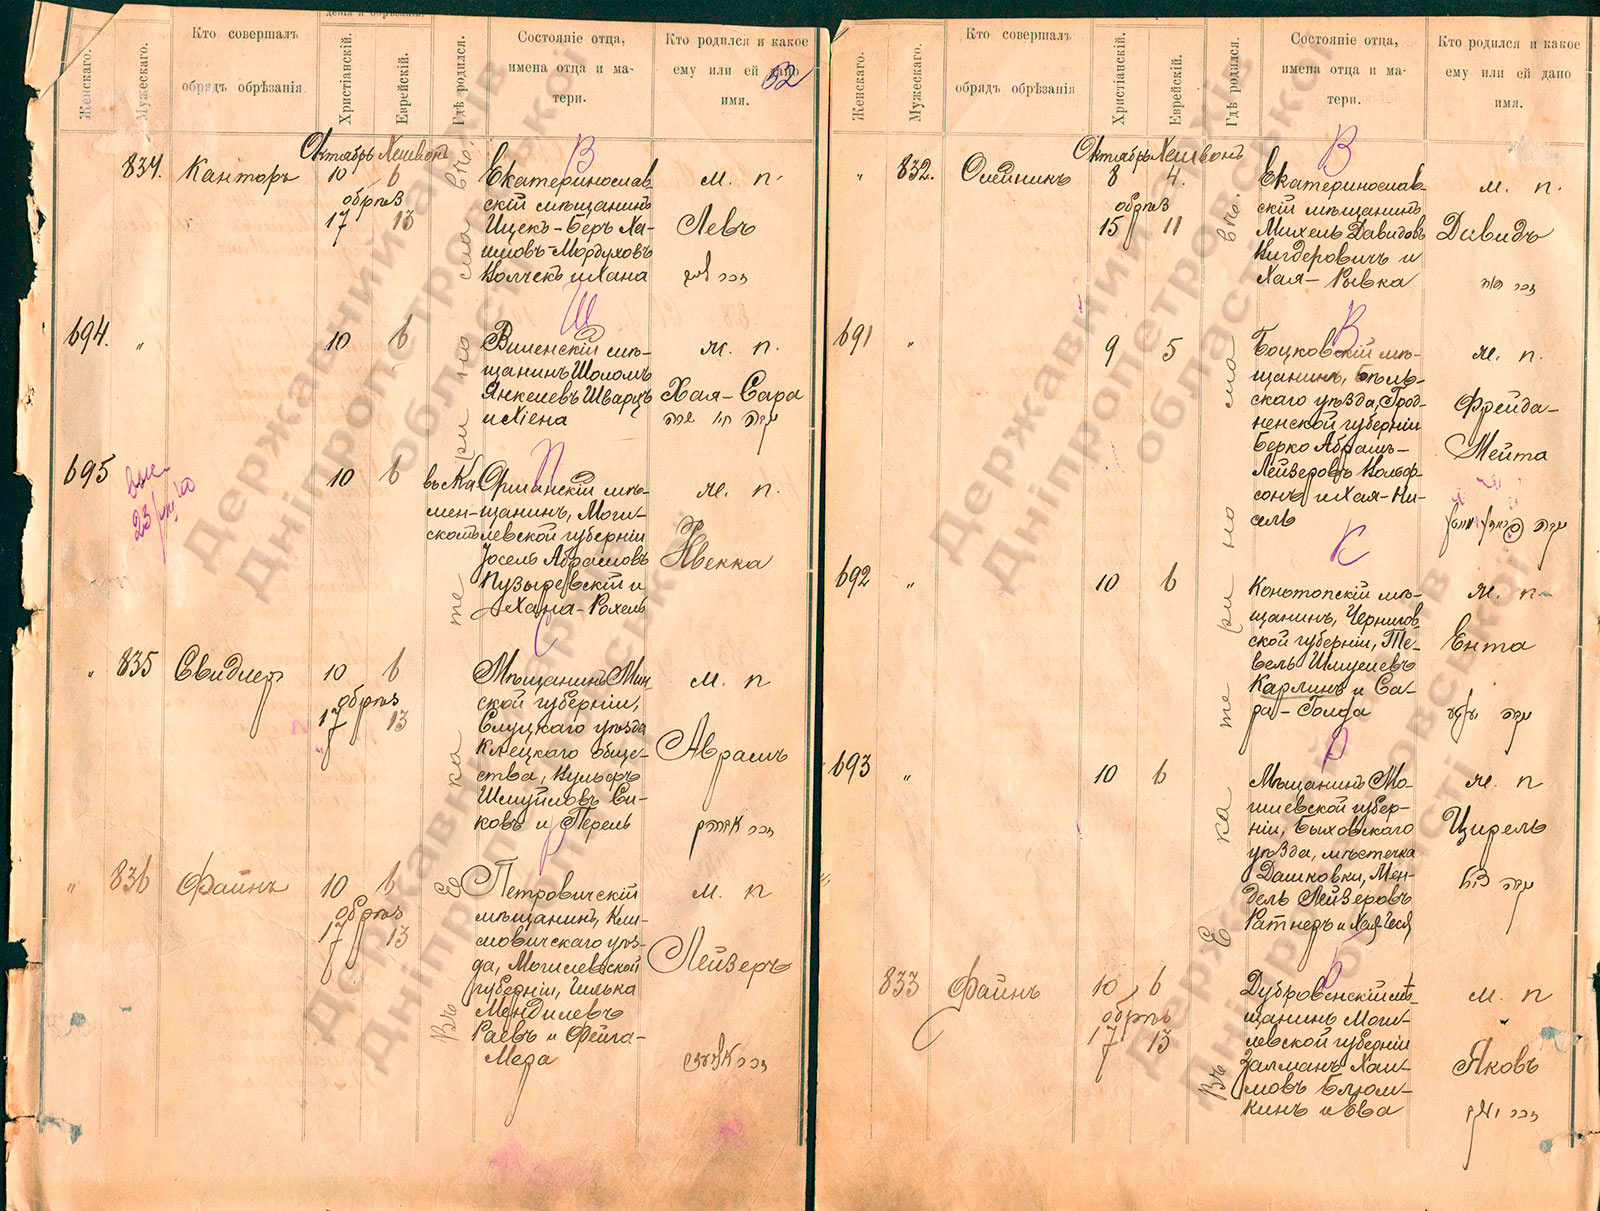 Женскаго.
Мужескаго.
Кто совершалъ
обрядъ обрѣзанія.
Христіанскій.
Еврейскій.
Гдѣ родился.
Состояніе отца,
имена отца и ма-
тери.
Кто родился и какое
ему или ей дано
имя.
52
Октябрь Хешвонъ
834. Канторъ 10 6
обрѣз
17 13
В
Екатеринослав-
скій мѣщанинъ
Ицекъ-Беръ Ха-
имовъ-Мордуховъ
и Хана
м. п.
Левъ
694. " 10 6
Ш
Виленскій мѣ-
щанинъ Шоломъ
Янкелевъ Шварцъ
и Хіена
ж. п.
Хая-Сара
נקבה חיה שרה
695 10 6
въ Ка-
мен-
скомъ
П
Оршанскій мѣ-
щанинъ, Моги-
левской губерніи
Іосель Абрамовъ
Пузыревскій и
Хана-Рохель
ж. п.
Ривекка
" 835 Свидлеръ 10 6
обрѣз
17 13
С
Мѣщанинъ Мин-
ской губерніи,
Слуцкаго уѣзда
Клецкаго обще-
ства, Вульфъ
Шмуйловъ Си-
ковъ и Перель
м. п
Авраамъ
" 836 Файнъ 10 6
обрѣз
17 13
Р
Петровичскій
мѣщанинъ, Кли-
мовичскаго уѣз-
да, Могилевской
губерніи, Гилька
Мендилевъ
Раевъ и Фейга-
Мера
м. п
Лейзеръ
Въ Екатеринославѣ.
Женскаго.
Мужескаго.
Кто совершалъ
обрядъ обрѣзанія
Христіанскій.
Еврейскій.
Гдѣ родился.
Состояніе отца,
имена отца и ма-
тери.
Кто родился и какое
ему или ей дано
имя.
Октябрь Хешвонъ
" 832. Олейникъ 8 4.
обрѣз
15 11
В
Екатеринослав-
скій мѣщанинъ
Михель Давидовъ
Вигдеровичъ и
Хая-Рывка
м. п.
Давидъ
זכר דוד
691 " 9 5
В
Боцковскій мѣ-
щанинъ, Бѣль-
скаго уѣзда, Грод-
ненской губерніи
Берко Абрамъ-
Лейзеровъ Вольф-
сонъ и Хая-Ни-
сель
ж. п.
Фрейда-
Мейта
692 " 10 6
К
Конотопскій мѣ-
щанинъ, Чернигов-
ской губерніи, Те-
вель Шмуелевъ
Карлинъ и Са-
ра-Голда
ж. п
Ента
693 " 10 6
Р
Мѣщанинъ Мо-
гилевской губер-
ніи, Быховскаго
уѣзда, мѣстечка
Дашковки, Мен-
дель Лейзеровъ
Ратнеръ и Хая-Геся
ж. п
Цирель
833 Файнъ 10 6
обрѣз
17 13
Б
Дубровенскій мѣ-
щанинъ Моги-
левской губерніи
Залманъ Хаи-
мовъ Блюм-
кинъ и Ева
м. п
Яковъ
זכר יעקב
Въ Екатеринославѣ.
Державний архів
Дніпропетровської
області